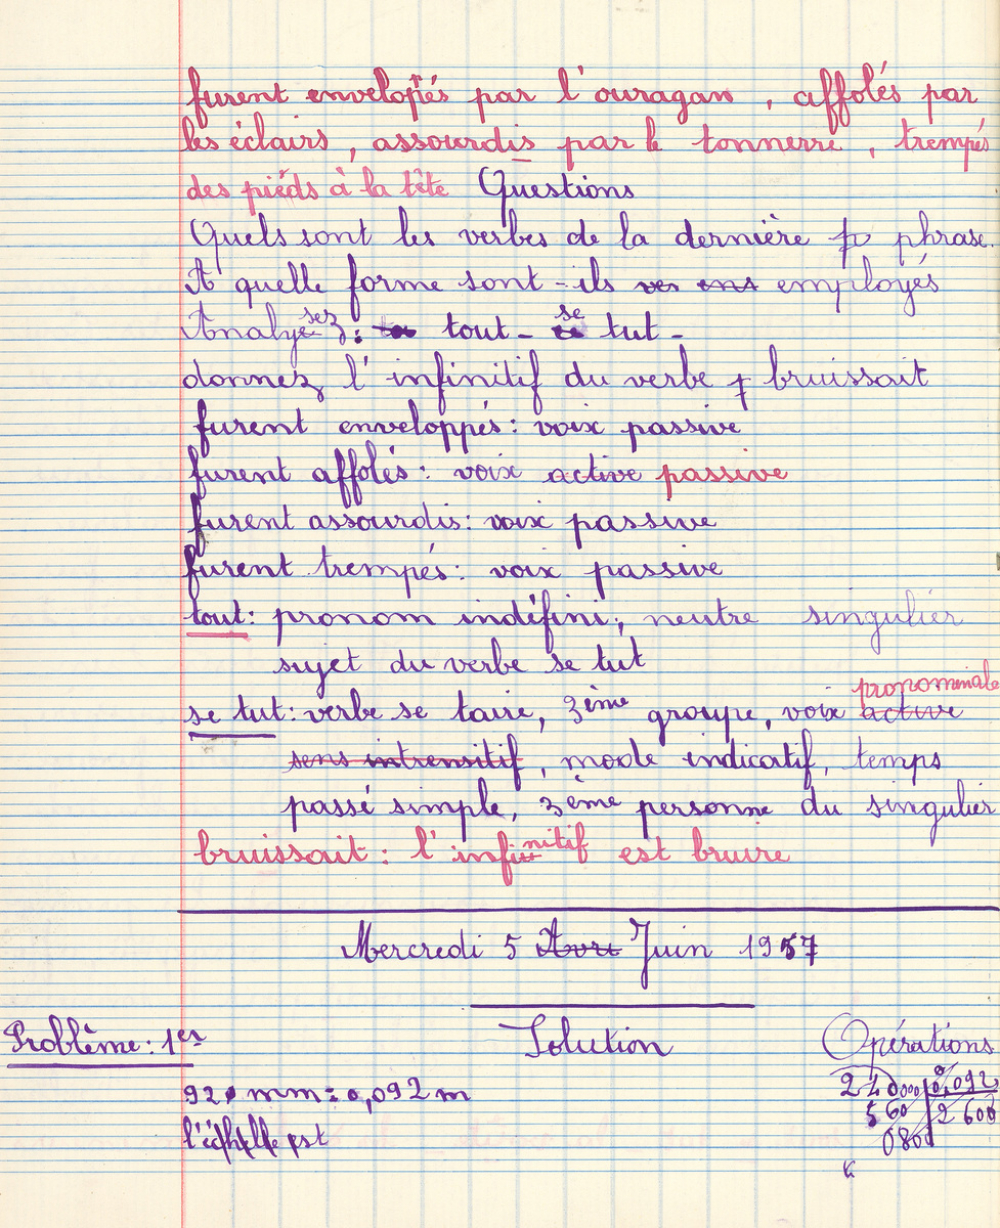 furent enveloppés par l'ouragan, affolés par
les éclairs, assourdis par le tonnerre, trempés
des pieds à la tête Questions
Quels sont les verbes de la dernière phrase.
A quelle forme sont-ils employés
Analysez: tout - se tut -
donnez l'infinitif du verbe bruissait
furent enveloppés: voix passive
furent affolés: voix active passive
furent assourdis: voix passive
furent trempés: voix passive
tout: pronom indéfini, neutre singulier
sujet du verbe se tut
se tut: verbe se taire, 3ème groupe, voix active pronominale
sens intrensitif, mode indicatif, temps
passé simple, 3ème personne du singulier
bruissait: l'infinitif est bruire
Mercredi 5 Avri Juin 1957
Problème: 1er Solution Opérations
92 mm = 0,092 m
l'échelle est
240000 0,092
560 2600
0800